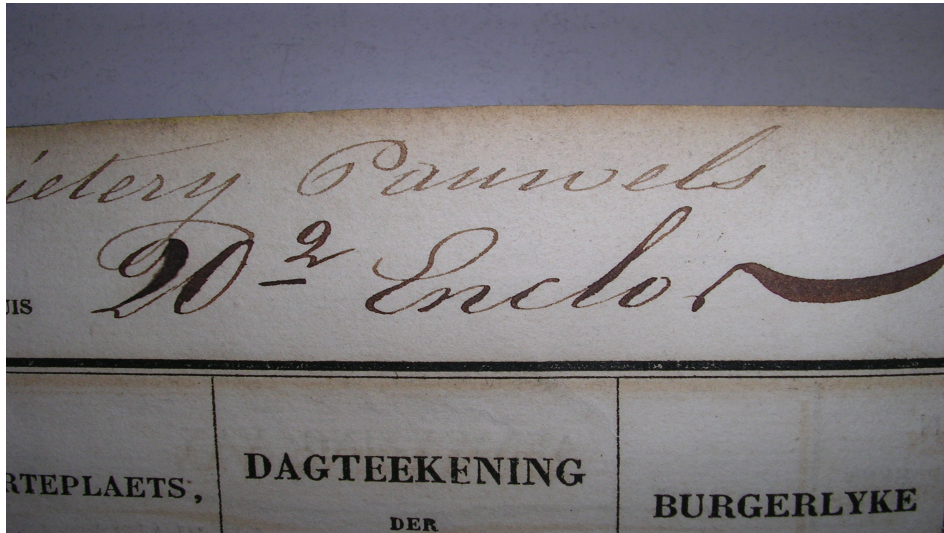 ietery Pauwels
UIS 20² Enclos
RTEPLAETS, DAGTEEKENING BURGERLYKE
DER